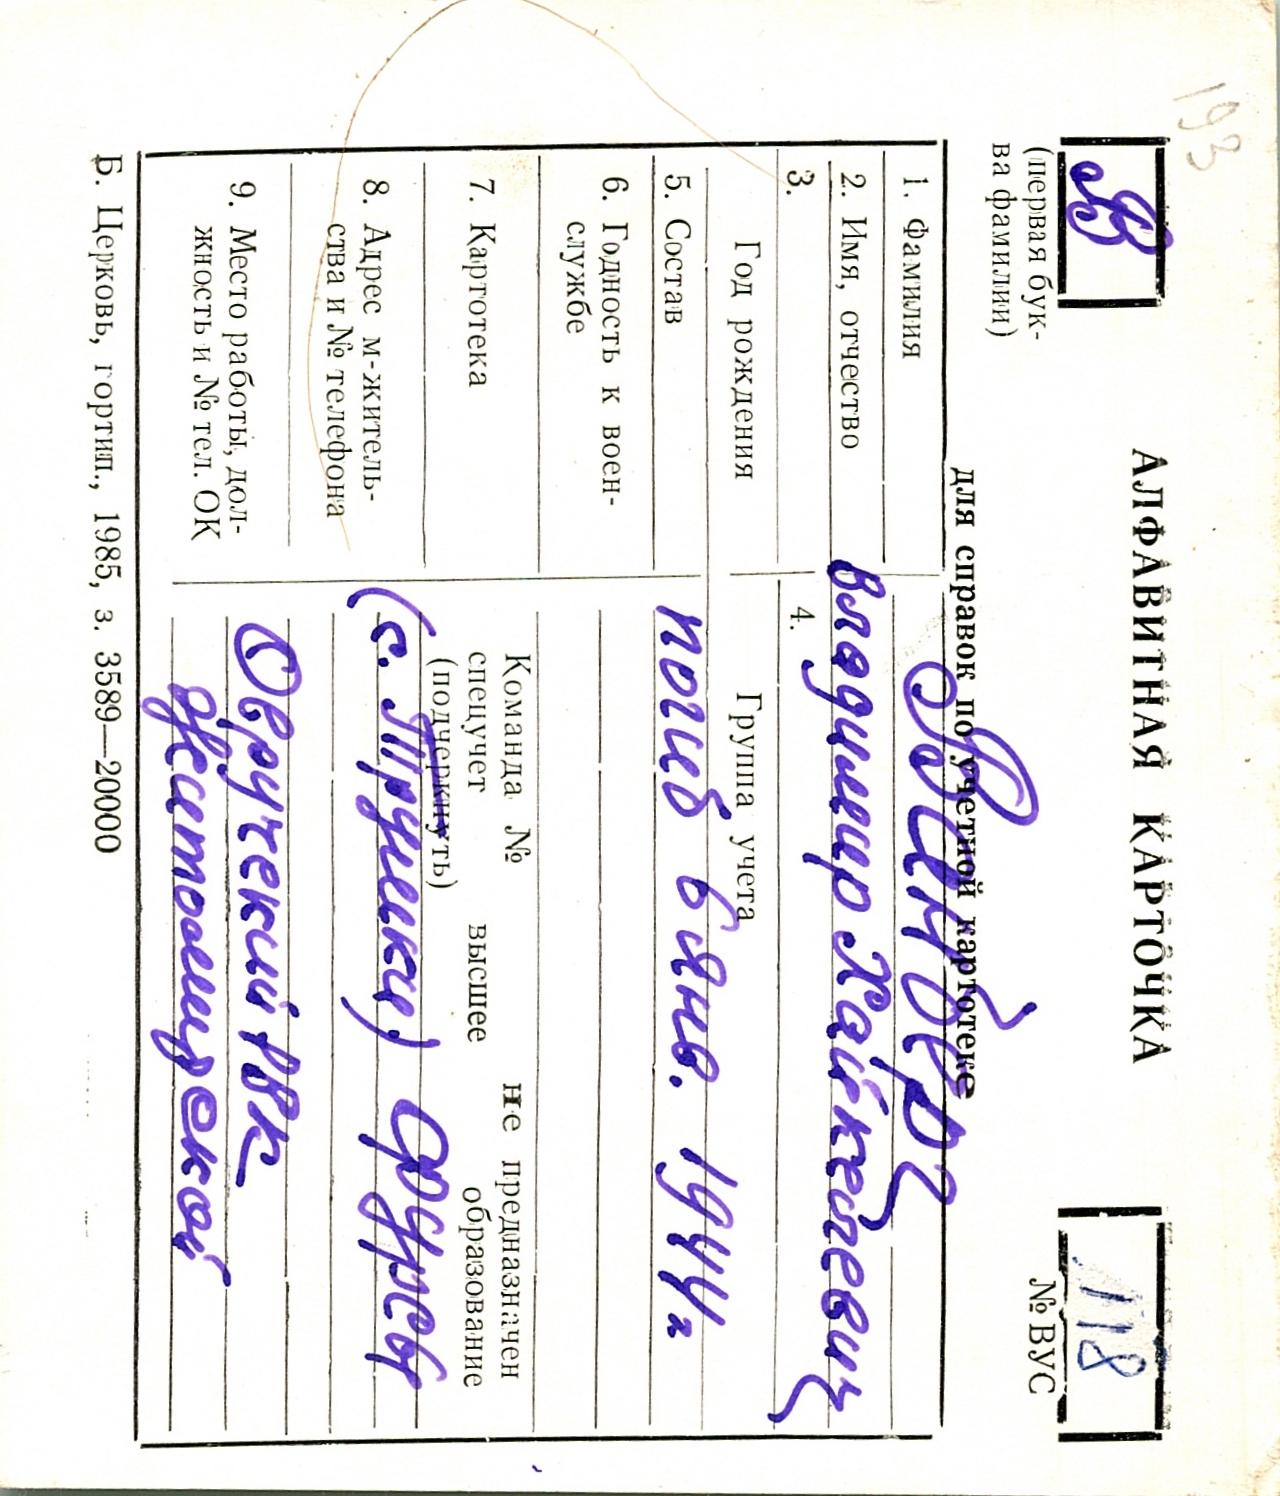 193
В
(первая бук-
ва фамилии)
АЛФАВИТНАЯ КАРТОЧКА
для справок по учетной картотеке
118
№ ВУС
1. Фамилия
Винберг
2. Имя, отчество
Владимир Хайкелевич
3.
Год рождения
4.
Группа учета
5. Состав
погиб в янв. 1944 г
6. Годность к воен-
службе
7. Картотека
Команда №
не предназначен
спецучет высшее образование
(подчеркнуть)
8. Адрес м-житель-
ства и № телефона
(с. Трушки) Фурсы
9. Место работы, дол-
жность и № тел. ОК
Овручский РВК
Житомирской
Б. Церковь, гортип., 1985, з. 3589—20000